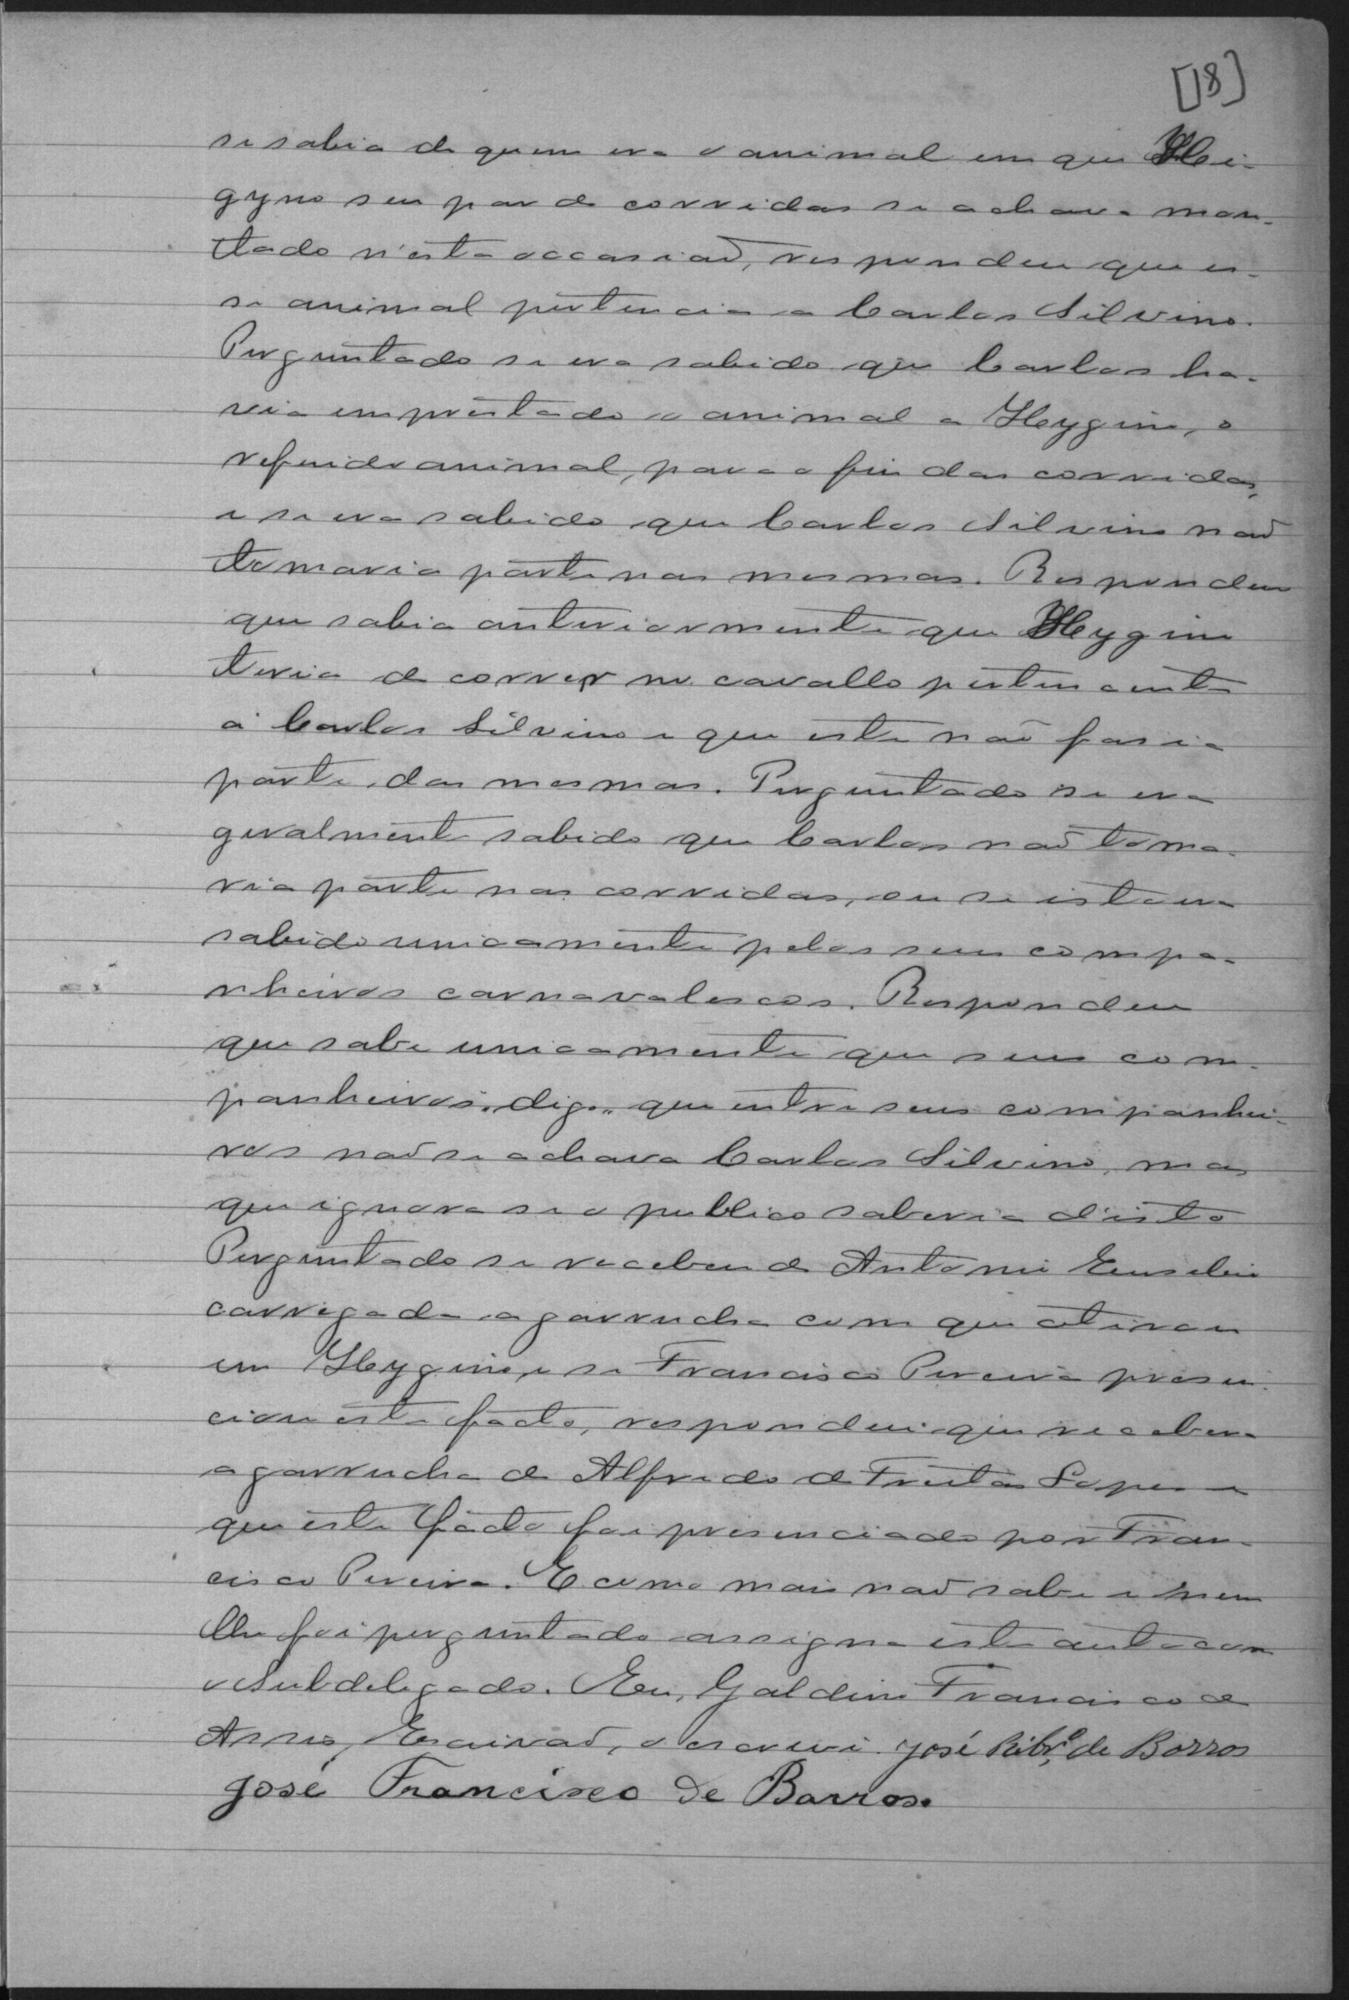 [18]
se sabia de quem era o animal em que Hei-
gyno seu par de corridas se achava mon-
tado n'esta occasiaõ, respondeu que es-
se animal pertencia a Carlos Silvino.
Perguntado se era sabido que Carlos ha-
via emprestado o animal a Heygino, o
referido animal, para o fim das corridas,
e se era sabido que Carlos Silvino naõ
tomaria parte nas mesmas. Respondeu
que sabia anteriormente que Heygino
teria de correr no cavallo pertencente
a Carlos Silvino e que este naõ fasia
parte das mesmas. Perguntado se era
geralmente sabido que Carlos naõ toma-
ria parte nas corridas, ou se isto era
sabido unicamente pelos seus compa-
nheiros carnavalescos. Respondeu
que sabe unicamente que seus com-
panheiros, digo, que entre seus companhei-
ros naõ se achava Carlos Silvino, mas
que ignora se o publico saberia d'isto
Perguntado se recebeu de Antonio Eusebio
carregada a garrucha com que atirou
em Heygino, e se Francisco Pereira presen-
ciou este facto, respondeu que recebera
a garrucha de Alfredo de Freitas Lopes e
que este facto foi presenciado por Fran-
cisco Pereira. E como mais naõ sabe e nem
lhe foi perguntado assigna este auto com
o Subdelegado. Eu, Galdino Francisco de
Assis, Escrivaõ, o escrevi. José Ribrº de Barros
José Francisco de Barros.